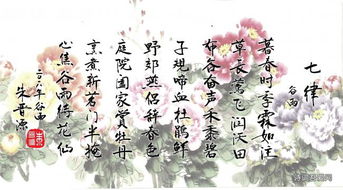 七律
谷雨
暮春时季霖如注
草长莺飞润沃田
布谷奋声禾黍碧
子规啼血杜鹃鲜
野郊燕侣辞春色
庭院阖家赏牡丹
烹煮新茗门半掩
心焦谷雨待花仙
年谷雨
朱晋源